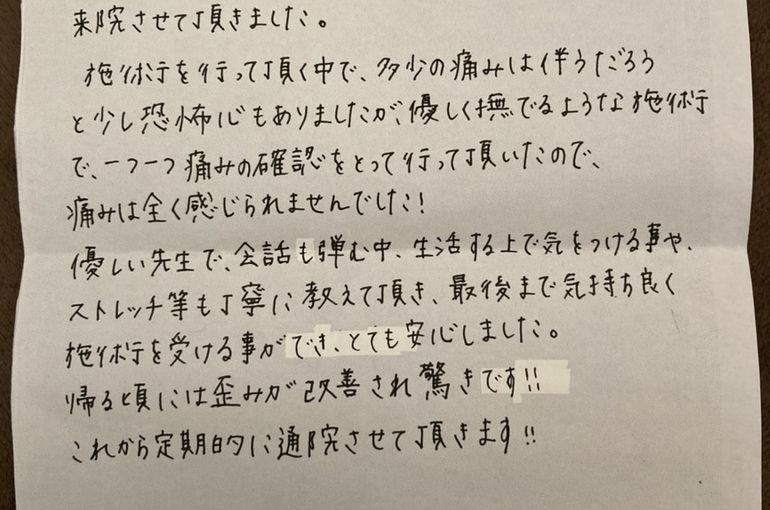 来院させて頂きました。
施術を行って頂く中で、多少の痛みは伴うだろう
と少し恐怖心もありましたが、優しく撫でるような施術
で、一つ一つ痛みの確認をとって行って頂いたので、
痛みは全く感じられませんでした！
優しい先生で、会話も弾む中、生活する上で気をつける事や、
ストレッチ等も丁寧に教えて頂き、最後まで気持ち良く
施術を受ける事ができ、とても安心しました。
帰る頃には歪みが改善され驚きです!!
これから定期的に通院させて頂きます!!